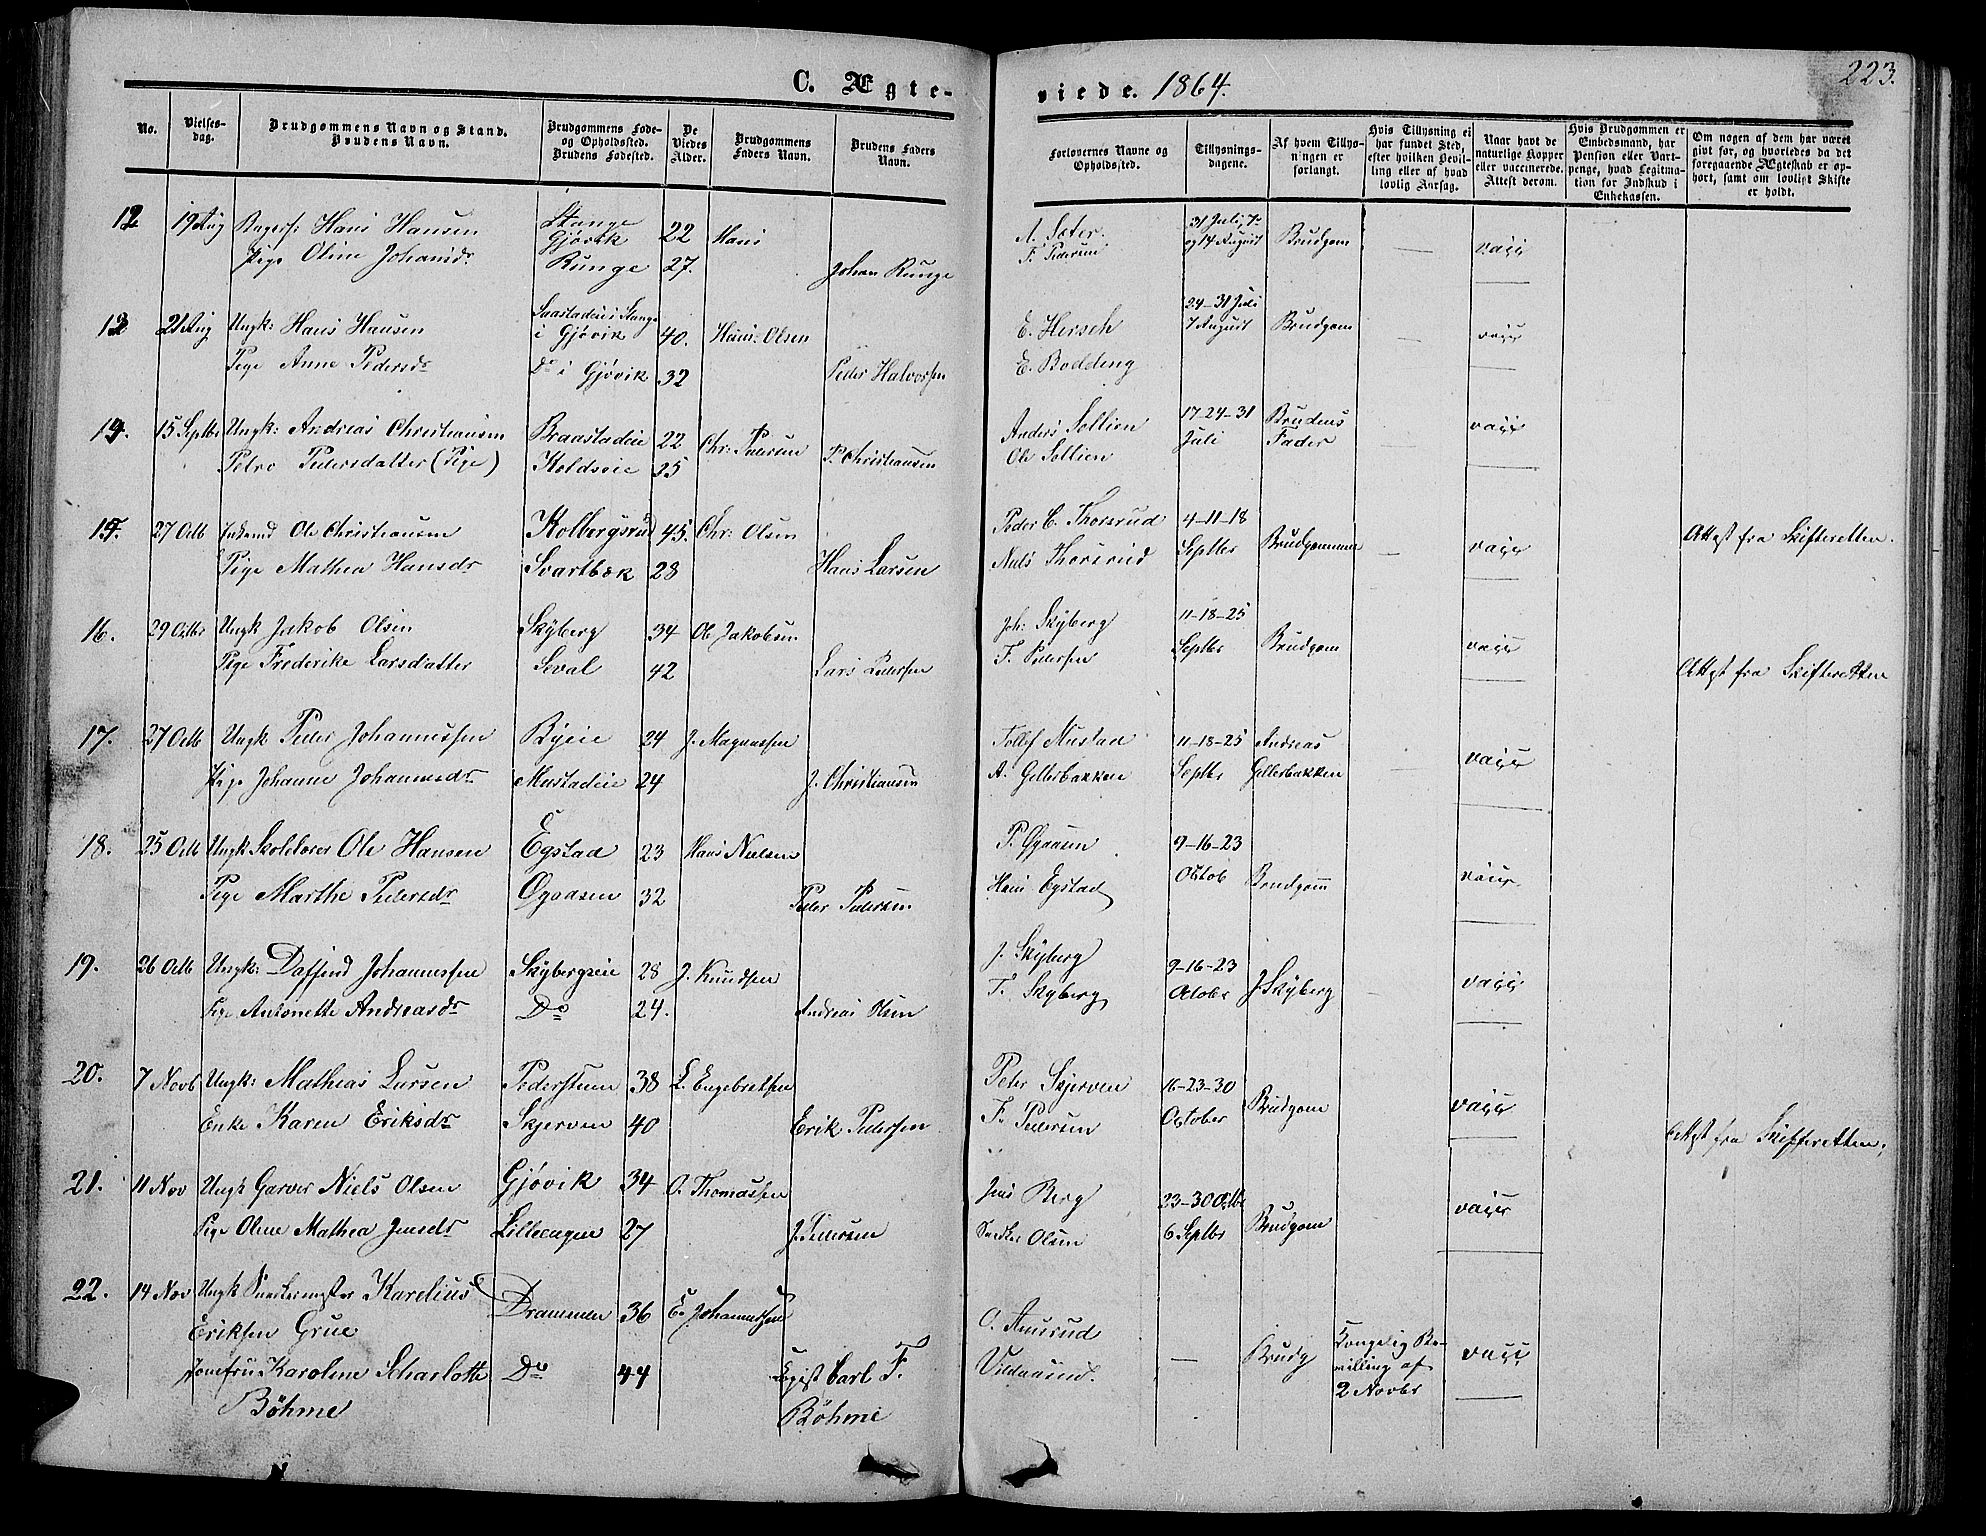 C. Ægte-
viede. 1864.
223.
No.
Vielses-
dag.
Brudgommens Navn og Stand.
Brudens Navn.
Brudgommens Føde-
og Opholdssted.
Brudens Fødested.
De
Viedes
Alder.
Brudgommens
Faders Navn.
Brudens Faders
Navn.
Forlovernes Navne og
Opholdssted.
Tillysnings-
dagene.
Af hvem Tillys-
ningen er
forlangt.
Hvis Tillysning ei
har fundet Sted,
efter hvilken Bevil-
ling eller af hvad
lovlig Aarsag.
Naar havt de
naturlige Kopper
eller vaccinerede.
Attest derom.
Hvis Brudgommen er
Embedsmand, har
Pension eller Vart-
penge, hvad Legitima-
tion for Indskud i
Enkekassen.
Om nogen af dem har været
givt før, og hvorledes da det
foregaaende Ægteskab er op-
hørt, samt om lovligt Skifte
er holdt.
12 19 Aug Hans Hansen Stange
Gjøvik 22 Hans A. Sæter. 31 Juli, 7-
og 14 August Brudgom — vacc
Pige Oline Johansdr Runge 27. Johan Runge F. Pedersen
13 21 Aug Ungk: Hans Hansen Stange
i Gjøvik 40. Hans Olsen E. Hersch 24-31 Juli
7 August Brudgom — vacc
Pige Anne Pedersdr Do i Gjøvik 32 Peder Halvorsen E. Bodding
14. 15 Septbr Ungk: Andreas Christiansen Braastadeie 22 Chr: Pedersen Anders Sollien 17-24-31
Juli Brudens
Fader vacc
Petro Pedersdatter (Pige) Koldseie 25 P. Christiansen Ole Sollien
15. 27 Octb Ole Christiansen Kolbergsrud 45. Chr: Olsen Peder C. Thorsrud 4-11-18
Septbr Brudgommen — vacc Attest fra Skifteretten.
Pige Mathea Hansdr Svartbæk 28 Hans Larsen Niels Thorsrud
16. 29 Octbr Ungk Jakob Olsen Skyberg 34 Ole Jakobsen Joh: Skyberg 11-18-25
Septbr Brudgom vacc
Pige Frederike Larsdatter Seval 42 Lars Pedersen F. Pedersen Attest fra Skifteretten
17. 27 Octb Ungk Peder Johannessen Byeie 24 J. Magnussen Tollef Mustad 11-18-25
Septbr Andreas
Gellerbakken — vacc
Pige Johanne Johannesdr Mustadeie 24 J. Christiansen A. Gellerbakken
18. 25 Octb Ungk Skolelærer Ole Hansen Egstad 23 Hans Nielsen P. Øgaasen 9-16-23
Octob Brudgom vacc
Pige Marthe Pedersdr Øgaasen 32 Peder Pedersen Hans Egstad
19. 26 Octb Ungk: Daffind Johannessen Skybergseie 28 J. Knudsen J. Skyberg 9-16-23
October J. Skyberg — vacc
Pige Antonette Andreasdr Do 24. Andreas Olsen F. Skyberg
20. 7 Novb Ungk: Mathias Larsen Pedersteen 38 L. Engebretsen Peter Skjerven 16-23-30
October Brudgom vacc
Enke Karen Eriksdr Skjerven 40 Erik Pedersen F. Pedersen Attest fra Skifteretten;
21. 11 Nov Ungk Garver Niels Olsen Gjøvik 34 O. Thomassen Jens Berg 23-30 Octbr
6 Septbr Brudgom vacc
Pige Oline Mathea Jensdr Lilleengen 27 J. Pedersen Olsen
22. 14 Nov Ungk Snedkermester Karelius
Eriksen Grue Drammen 36 E. Johannessen O. Amrud — Brudg Kongelig Be-
villing af
2 Novbr vacc
Jomfru Karoline Scharlotte
Böhme Do 44 Carl F.
Böhme